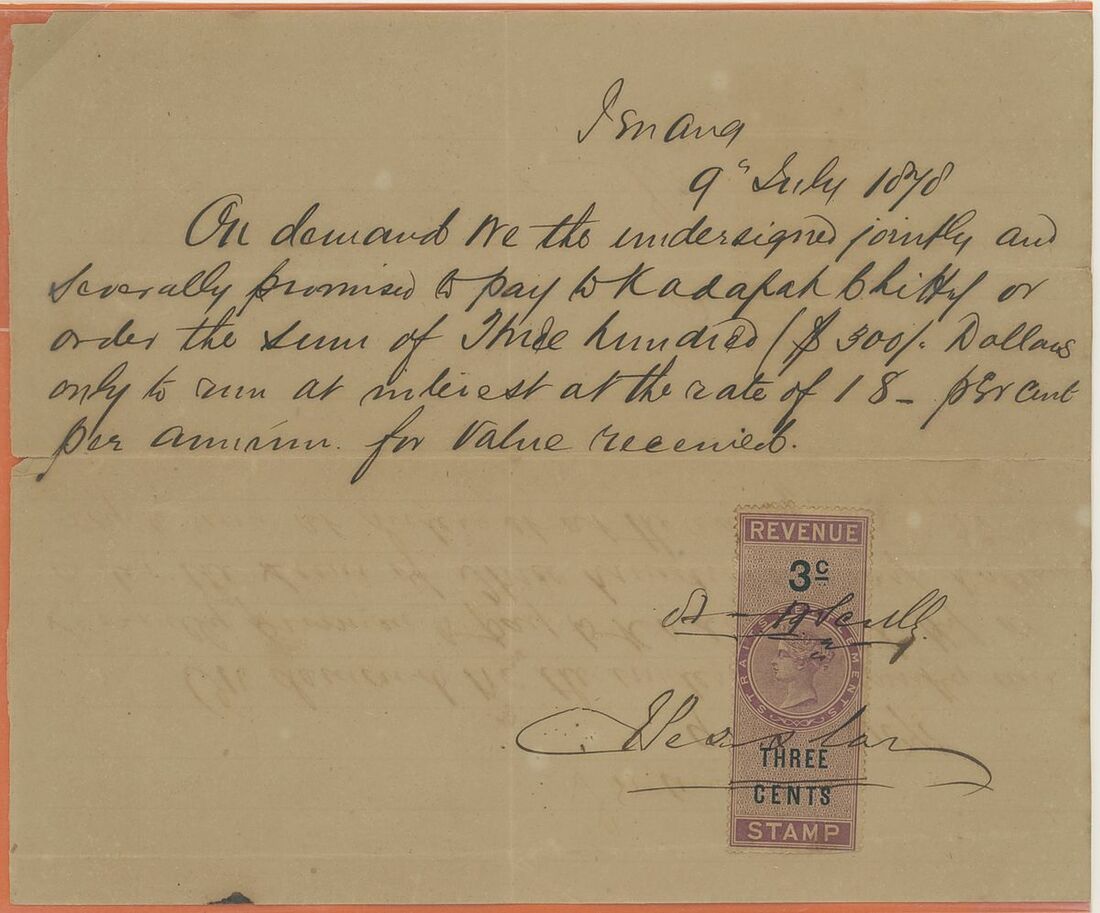 Penang
9" July 1878
On demand We the undersigned jointly and
severally promised to pay to Kadapah Chitty or
order the sum of Three hundred ($ 300/. Dollars
only to run at interest at the rate of 18 - per cent
per annum. for Value received.
REVENUE
3c
STRAITS SETTLEMENTS
THREE
CENTS
STAMP